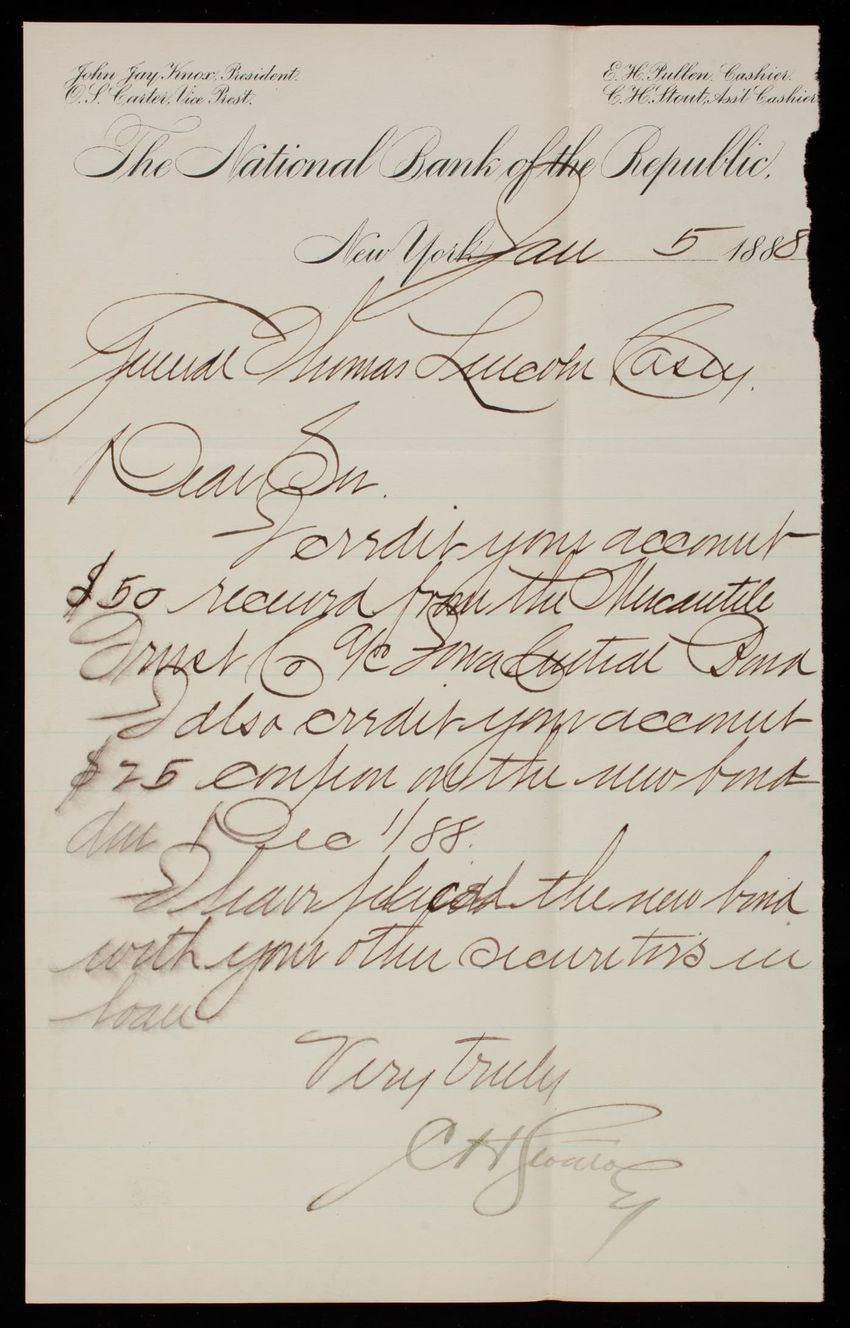 John Jay Knox, President.
O. S. Carter, Vice Prest.
E. H. Pullen, Cashier.
C. H. Stout, Asst Cashier
The National Bank of the Republic,
New York Jan 5 1888
General Thomas Lincoln Casey.
Dear Sir.
I credit your account
$50 received from the Mercantile
Trust Co a/c Iowa Central Bond
I also credit your account
$25 coupon on the new bond
due Dec 1/88.
I have placed the new bond
with your other securities in
loan
Very truly
C H Stout